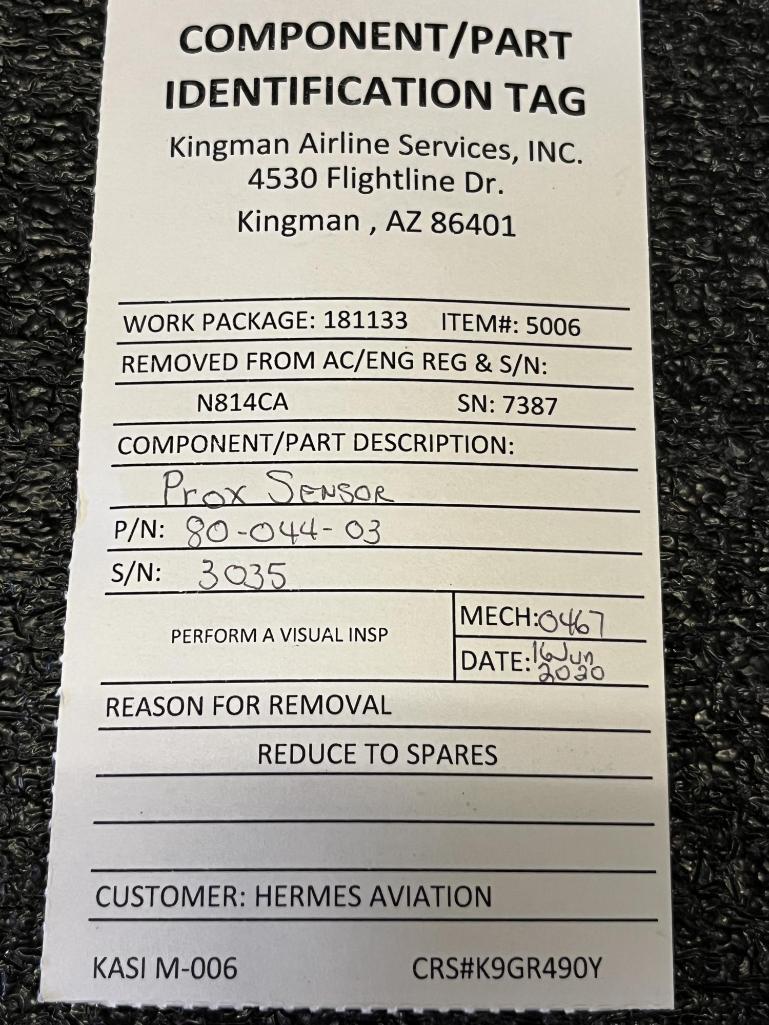 COMPONENT/PART
IDENTIFICATION TAG
Kingman Airline Services, INC.
4530 Flightline Dr.
Kingman , AZ 86401
WORK PACKAGE: 181133 ITEM#: 5006
REMOVED FROM AC/ENG REG & S/N:
N814CA SN: 7387
COMPONENT/PART DESCRIPTION:
Prox SENSOR
P/N: 80-044-03
S/N: 3035
PERFORM A VISUAL INSP
MECH: 0467
DATE: 16Jun
2020
REASON FOR REMOVAL
REDUCE TO SPARES
CUSTOMER: HERMES AVIATION
KASI M-006 CRS#K9GR490Y